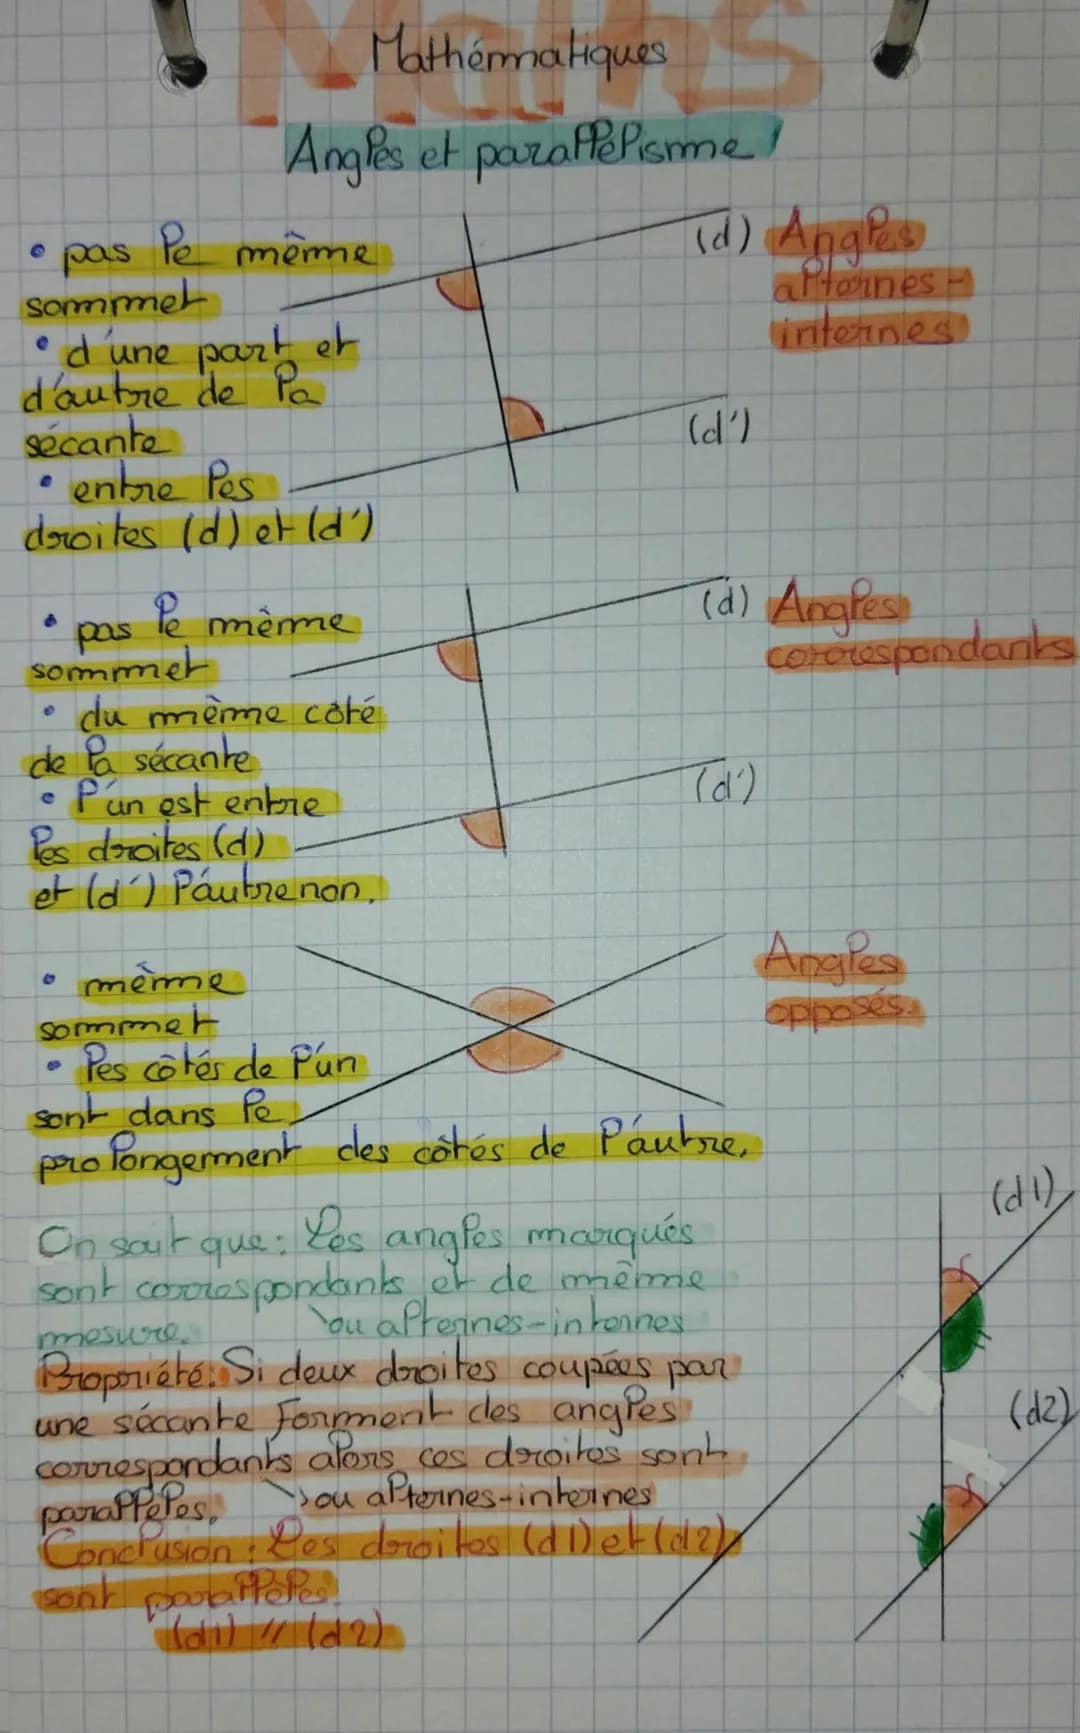 Maths
Mathématiques
Angles et parallélisme
• pas le même
sommet
• d'une part et
d'autre de la
sécante
• entre les
droites (d) et (d')
(d)
(d')
Angles
alternes-
internes
• pas le même
sommet
• du même côté
de la sécante
• l'un est entre
les droites (d)
et (d') l'autre non.
(d)
(d')
Angles
correspondants
• même
sommet
• les côtés de l'un
sont dans le
prolongement des côtés de l'autre.
Angles
opposés.
On sait que : Les angles marqués
sont correspondants et de même
mesure.
ou alternes-internes
Propriété : Si deux droites coupées par
une sécante forment des angles
correspondants alors ces droites sont
parallèles.
ou alternes-internes
Conclusion : Les droites (d1) et (d2)
sont parallèles.
(d1) // (d2)
(d1)
(d2)